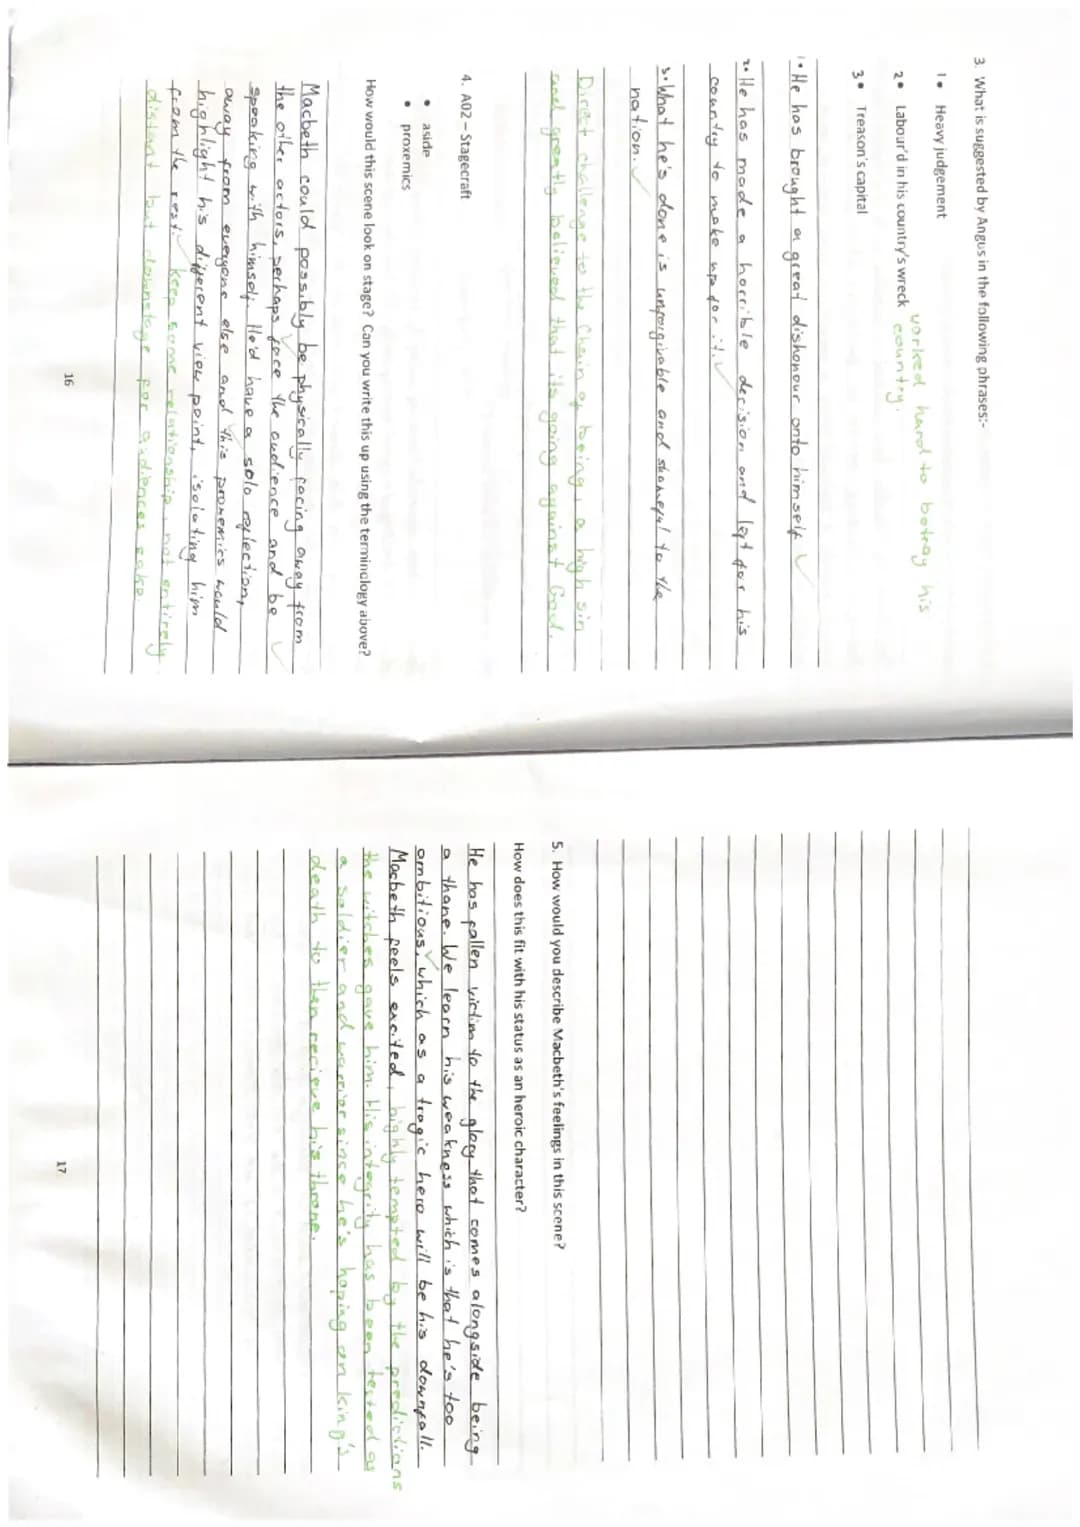 3. What is suggested by Angus in the following phrases:-
1• Heavy judgement
2• Labour'd in his country's wreck worked hard to betray his
country.
3• Treason's capital
1• He has brought a great dishonour onto himself ✓
2• He has made a horrible decision and left for his
country to make up for it. ✓
3• What he's done is unforgivable and shameful to the
nation. ✓
Direct challenge to the Chain of being, a high sin
and greatly believed that its going against God.
4. A02 – Stagecraft
• aside
• proxemics
How would this scene look on stage? Can you write this up using the terminology above?
Macbeth could possibly be physically facing away from
the other actors, perhaps face the audience and be
speaking with himself. He'd have a solo reflection,
away from everyone else and this proxemics would
highlight his different view point, isolating him
from the rest. Keep some relationship, not entirely
distant but downstage for audiences sake
16
5. How would you describe Macbeth's feelings in this scene?
How does this fit with his status as an heroic character?
He has fallen victim to the glory that comes alongside being
a thane. We learn his weakness which is that he's too
ambitious, which as a tragic hero will be his downfall.
Macbeth feels excited, highly tempted by the predictions
the witches gave him. His integrity has been tested as
a soldier and warrior since he's hoping on king's
death to then recieve his throne.
17